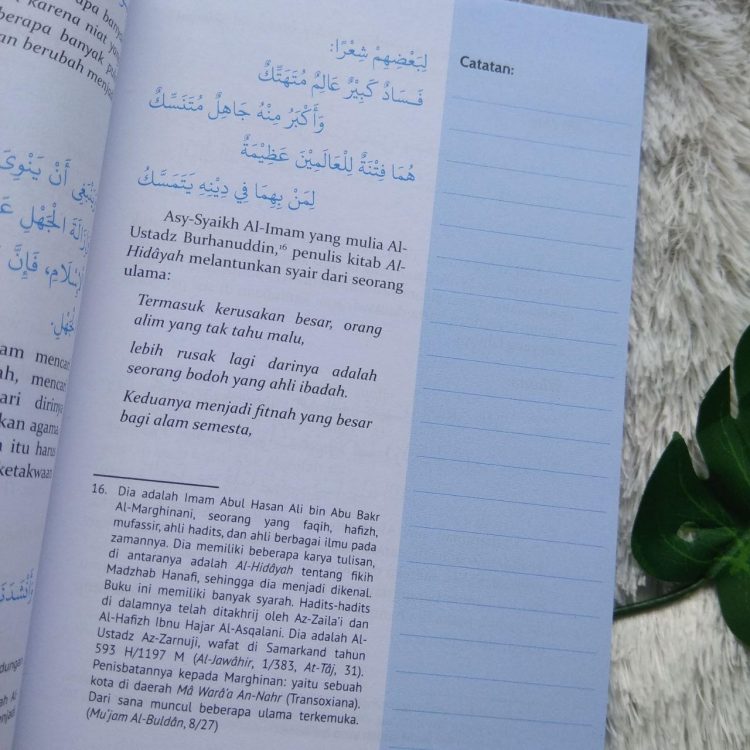 karena niat
erapa banyak
an berubah menjad
أَنْ يَنْوِيَ
الْجَهْلِ
فَإِنَّ
am mencar
ah, mencari
ari dirinya
kan agama
n itu harus
ketakwaan
لِبَعْضِهِمْ شِعْرًا:
فَسَادٌ كَبِيْرٌ عَالِمٌ مُتَهَتِّكٌ
وَأَكْبَرُ مِنْهُ جَاهِلٌ مُتَنَسِّكٌ
هُمَا فِتْنَةٌ لِلْعَالَمِيْنَ عَظِيْمَةٌ
لِمَنْ بِهِمَا فِي دِيْنِهِ يَتَمَسَّكُ
Asy-Syaikh Al-Imam yang mulia Al-
Ustadz Burhanuddin,¹⁶ penulis kitab Al-
Hidâyah melantunkan syair dari seorang
ulama:
Termasuk kerusakan besar, orang
alim yang tak tahu malu,
lebih rusak lagi darinya adalah
seorang bodoh yang ahli ibadah.
Keduanya menjadi fitnah yang besar
bagi alam semesta,
16. Dia adalah Imam Abul Hasan Ali bin Abu Bakr
Al-Marghinani, seorang yang faqih, hafizh,
mufassir, ahli hadits, dan ahli berbagai ilmu pada
zamannya. Dia memiliki beberapa karya tulisan,
di antaranya adalah Al-Hidâyah tentang fikih
Madzhab Hanafi, sehingga dia menjadi dikenal.
Buku ini memiliki banyak syarah. Hadits-hadits
di dalamnya telah ditakhrij oleh Az-Zaila'i dan
Al-Hafizh Ibnu Hajar Al-Asqalani. Dia adalah Al-
Ustadz Az-Zarnuji, wafat di Samarkand tahun
593 H/1197 M (Al-Jawâhir, 1/383, At-Tâj, 31).
Penisbatannya kepada Marghinan: yaitu sebuah
kota di daerah Mâ Warâ'a An-Nahr (Transoxiana).
Dari sana muncul beberapa ulama terkemuka.
(Mu'jam Al-Buldân, 8/27)
Catatan: